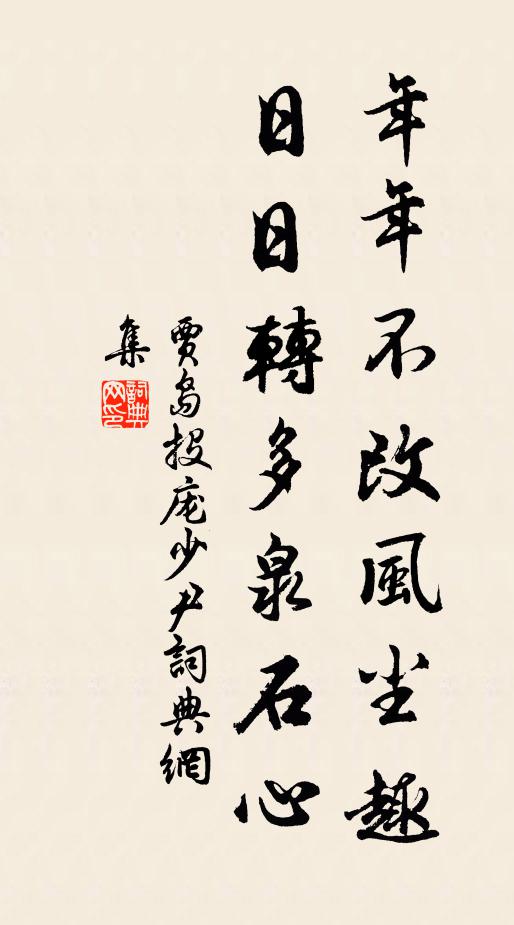 年年不改風尘趣
日日轉多泉石心
賈島投庞少尹詞典網
集
詞典網印